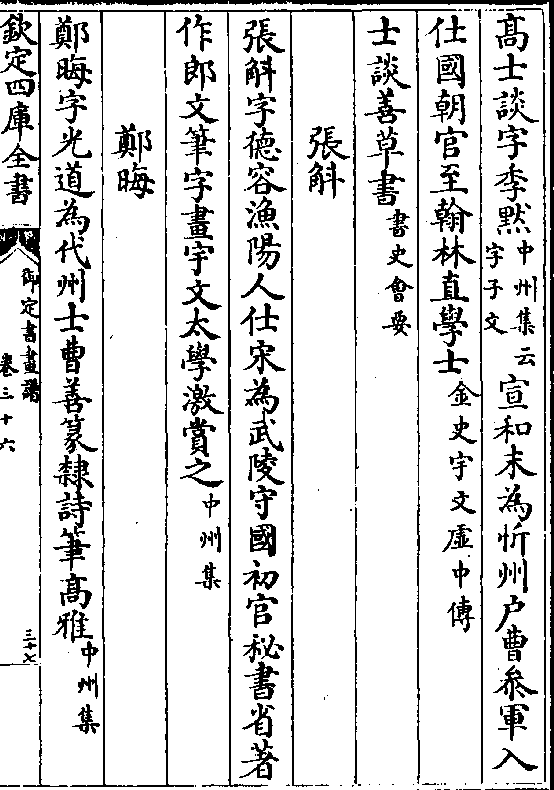 髙士談字季黙中州集云字子文宣和末為忻州户曹叅軍入
仕國朝官至翰林直學士金史宇文虛中傳
士談善草書書史會要
張斛
張斛字德容漁陽人仕宋為武陵守國初官秘書省著
作郎文筆字畫宇文太學激賞之中州集
鄭晦
鄭晦字光道為代州士曹善篆隸詩筆髙雅中州集
欽定四庫全書
御定書畫譜
卷三十六
三十七